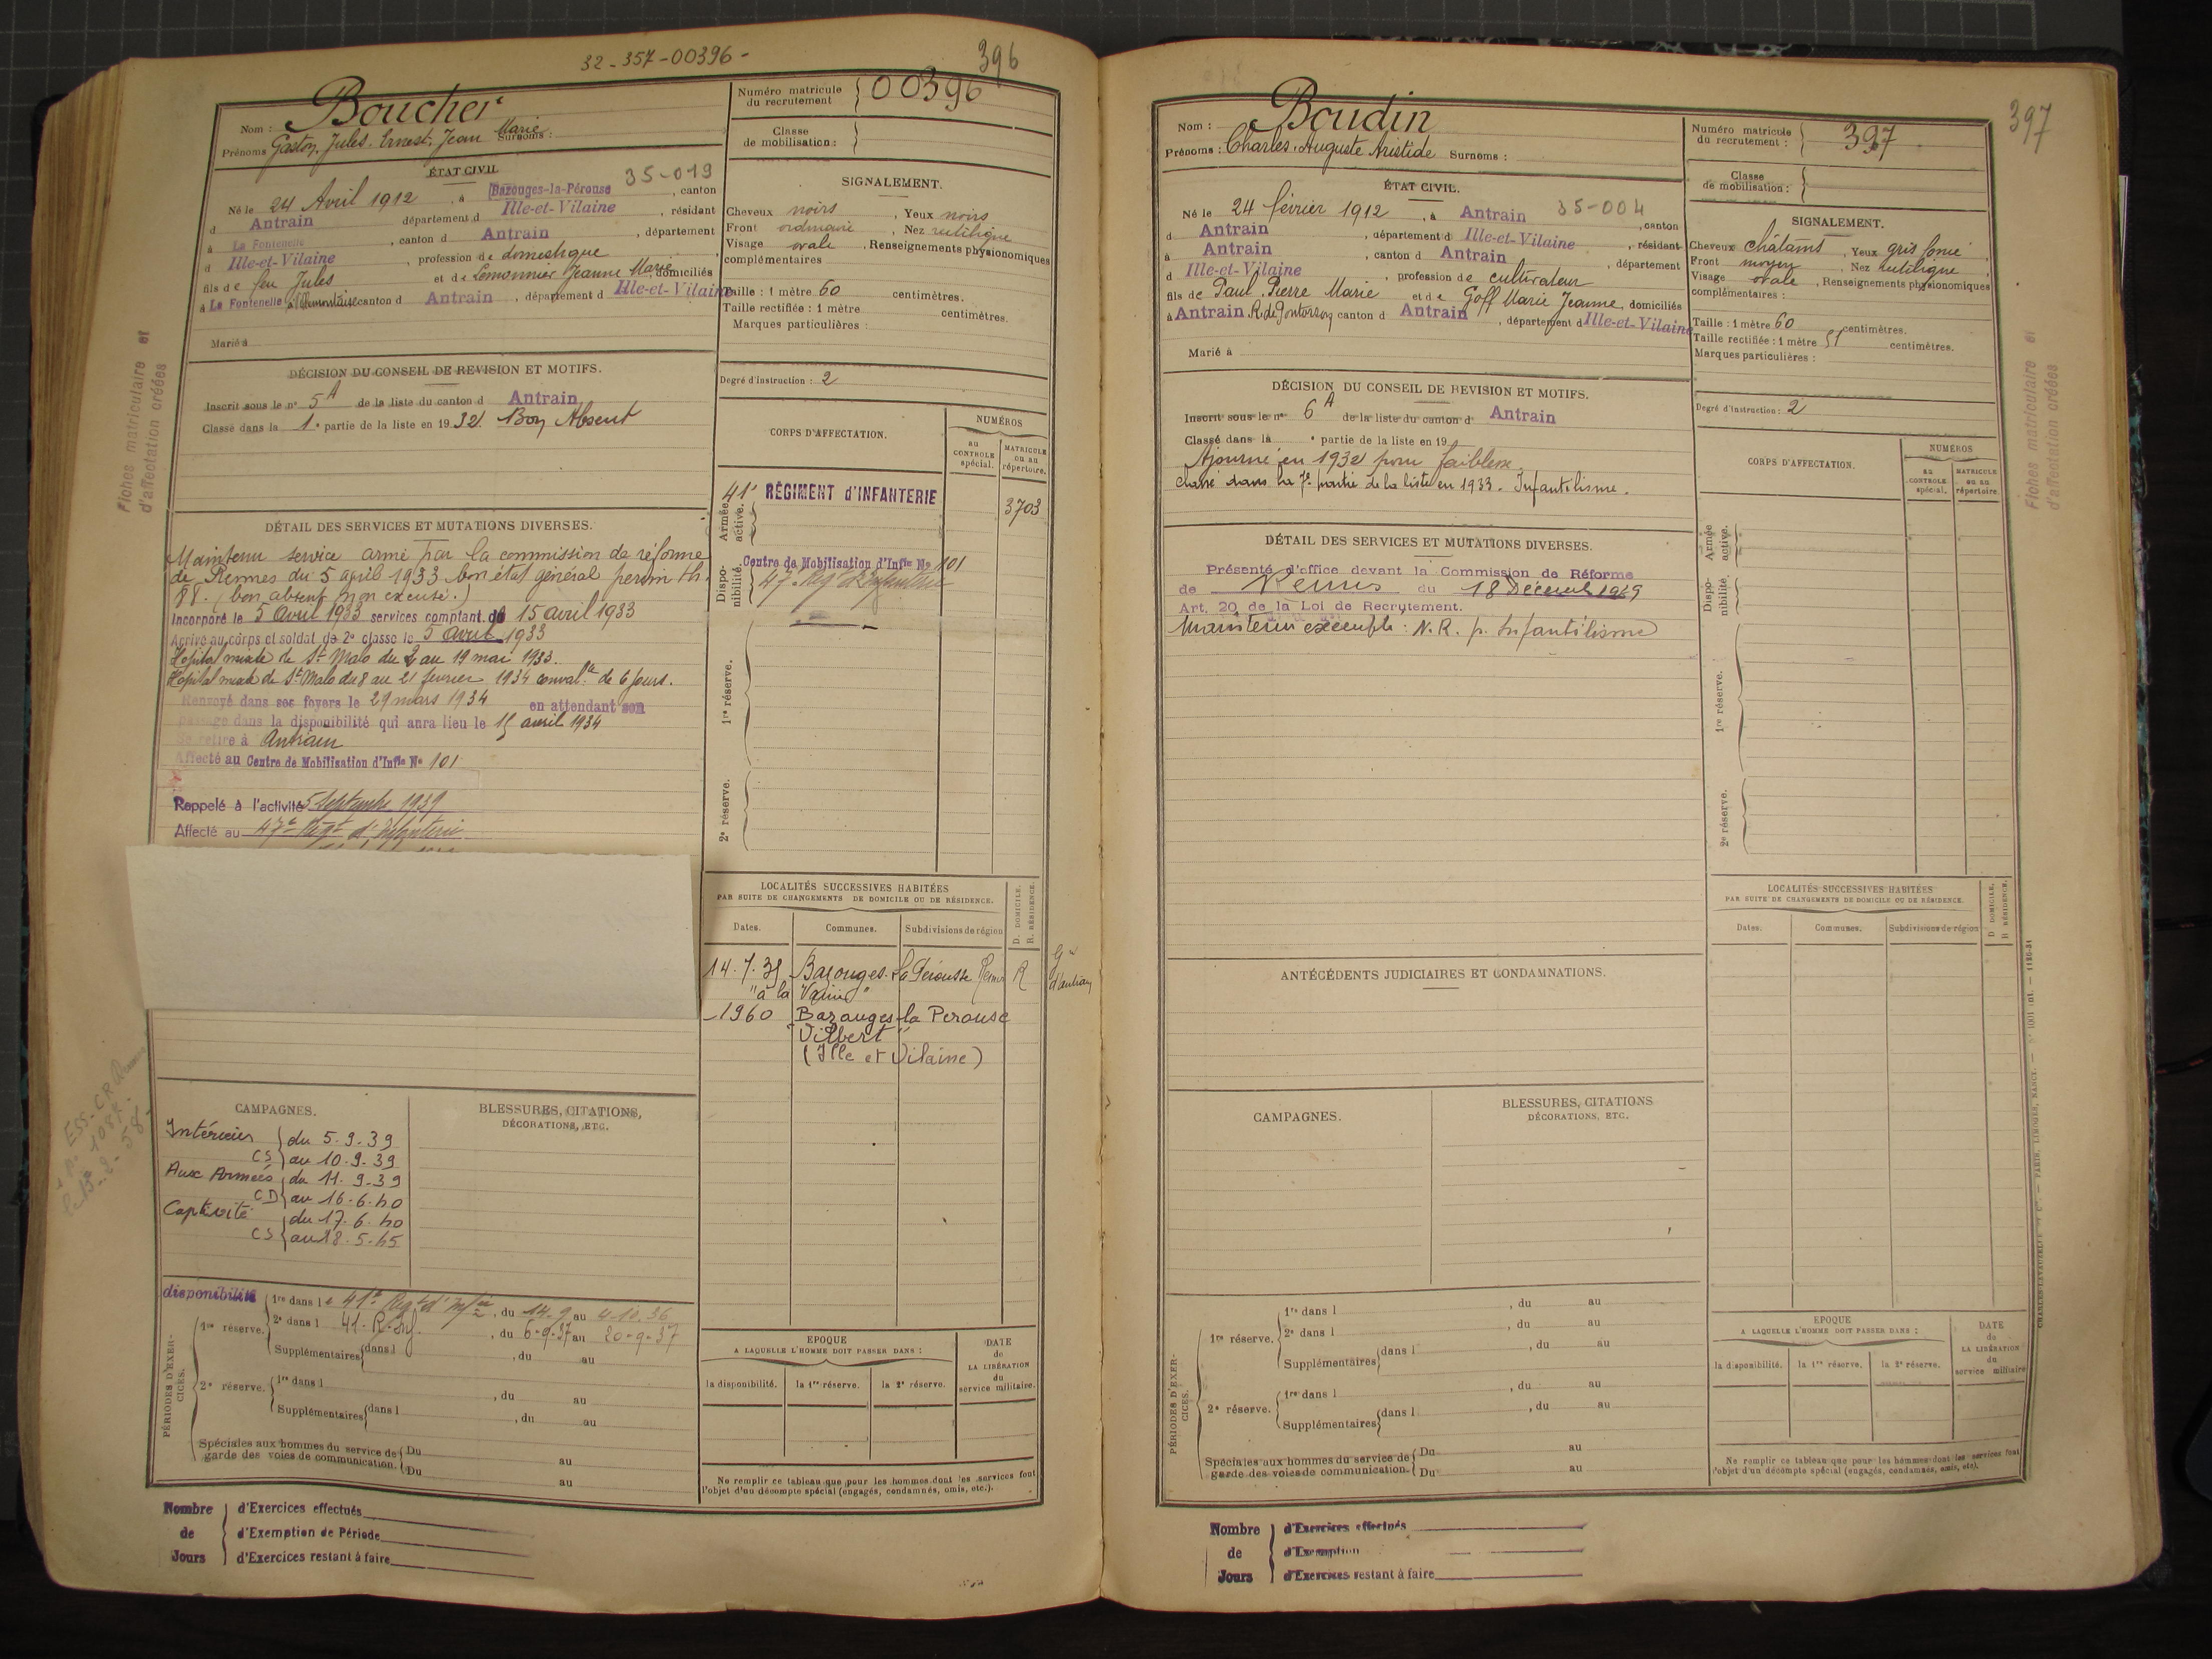 32-357-00396-
396
Boucher
Nom :
Prénoms Gaston, Jules, Ernest, Jean Marie Surnoms :
Numéro matricule du recrutement 00396
Classe de mobilisation :
ÉTAT CIVIL
35-019
Né le 24 Avril 1912, à Bazouges-la-Pérouse, canton
d Antrain département d Ille-et-Vilaine, résidant
à La Fontenelle, canton d Antrain, département
d Ille-et-Vilaine, profession de domestique
fils de feu Jules et de Lemonnier Jeanne Marie, domiciliés
à La Fontenelle canton d Antrain, département d Ille-et-Vilaine
Marié à
SIGNALEMENT.
Cheveux noirs, Yeux noirs
Front ordinaire, Nez rectiligne
Visage ovale, Renseignements physionomiques
complémentaires
Taille : 1 mètre 60 centimètres.
Taille rectifiée : 1 mètre centimètres.
Marques particulières :
Degré d'instruction : 2
DÉCISION DU CONSEIL DE REVISION ET MOTIFS.
Inscrit sous le n° 5A de la liste du canton d Antrain
Classé dans la 1e partie de la liste en 1932 Bon Absent
Fiches matriculaire et
d'affectation créées
CORPS D'AFFECTATION.
NUMÉROS
AU CONTROLE spécial.
MATRICULE OU AU répertoire.
Armée active.
41e RÉGIMENT d'INFANTERIE
3703
Disponibilité.
Centre de Mobilisation d'Infie No 101
47e Régt d'Infanterie
1re réserve.
2e réserve.
DÉTAIL DES SERVICES ET MUTATIONS DIVERSES.
Maintenu service armé par la commission de réforme
de Rennes du 5 avril 1933 bon état général
88. (bon absent non excusé.)
Incorporé le 5 Avril 1933 services comptant du 15 avril 1933
Arrivé au corps et soldat de 2e classe le 5 Avril 1933
Hôpital mixte de St Malo du 2 au 19 mai 1933.
Hôpital mixte de St Malo du 8 au 21 février 1934 conval.ce de 6 jours.
Renvoyé dans ses foyers le 29 mars 1934 en attendant son
passage dans la disponibilité qui aura lieu le 15 avril 1934
Se retire à Antrain
Affecté au Centre de Mobilisation d'Infie No 101
Rappelé à l'activité 5 Septembre 1939
Affecté au 47e Régt d'Infanterie
LOCALITÉS SUCCESSIVES HABITÉES
PAR SUITE DE CHANGEMENTS DE DOMICILE OU DE RÉSIDENCE.
D. DOMICILE.
R. RÉSIDENCE.
Dates.
Communes.
Subdivisions de région
14.7.35 Bazouges-la Pérouse Rennes R
Gie d'antrain
"à la Vairie"
1960 Bazouges-la Perouse
"Vilbert"
(Ille et Vilaine)
CAMPAGNES.
Intérieur du 5-9-39
CS au 10-9-39
Aux Armées du 11-9-39
CD au 16-6-40
Captivité du 17-6-40
CS au 18-5-45
BLESSURES, CITATIONS, DÉCORATIONS, ETC.
PÉRIODES D'EXERCICES.
disponibilité
1re réserve.
1re dans le 41e Régt d'Infie, du 14-9 au 4-10-36
2e dans l 41. R. Inf., du 6-9-37 au 20-9-37
Supplémentaires dans l, du au
2e réserve.
1re dans l, du au
Supplémentaires dans l, du au
Spéciales aux hommes du service de garde des voies de communication. Du au
Du au
EPOQUE
A LAQUELLE L'HOMME DOIT PASSER DANS :
la disponibilité.
la 1re réserve.
la 2e réserve.
DATE de LA LIBÉRATION du service militaire.
Ne remplir ce tableau que pour les hommes dont les services font
l'objet d'un décompte spécial (engagés, condamnés, omis, etc.).
Nombre de Jours
d'Exercices effectués
d'Exemption de Période
d'Exercices restant à faire
397
Boudin
Nom :
Prénoms : Charles, Auguste Aristide Surnoms :
Numéro matricule du recrutement : 397
Classe de mobilisation :
ÉTAT CIVIL.
Né le 24 février 1912, à Antrain 35-004, canton
d Antrain, département d Ille-et-Vilaine, résidant
à Antrain, canton d Antrain, département
d Ille-et-Vilaine, profession de cultivateur
fils de Paul, Pierre Marie et de Goff Marie Jeanne, domiciliés
à Antrain R. de Pontorson canton d Antrain, département d Ille-et-Vilaine
Marié à
SIGNALEMENT.
Cheveux châtains, Yeux gris foncé
Front moyen, Nez rectiligne
Visage ovale, Renseignements physionomiques
complémentaires :
Taille : 1 mètre 60 centimètres.
Taille rectifiée : 1 mètre 51 centimètres.
Marques particulières :
Degré d'instruction : 2
DÉCISION DU CONSEIL DE REVISION ET MOTIFS.
Inscrit sous le n° 6A de la liste du canton d Antrain
Classé dans la e partie de la liste en 19
Ajourné en 1932 pour faiblesse.
Classé dans la 7e partie de la liste en 1933. Infantilisme.
Fiches matriculaire et
d'affectation créées
CORPS D'AFFECTATION.
NUMÉROS
AU CONTROLE spécial.
MATRICULE ou au répertoire.
Armée active.
Disponibilité.
1re réserve.
2e réserve.
DÉTAIL DES SERVICES ET MUTATIONS DIVERSES.
Présenté d'office devant la Commission de Réforme
de Rennes du 18 Décembre 1939
Art. 20 de la Loi de Recrutement.
Maintenu exempté : N.R. p. Infantilisme
LOCALITÉS SUCCESSIVES HABITÉES
PAR SUITE DE CHANGEMENTS DE DOMICILE OU DE RÉSIDENCE.
D. DOMICILE.
R. RÉSIDENCE.
Dates.
Communes.
Subdivisions de région
ANTÉCÉDENTS JUDICIAIRES ET CONDAMNATIONS.
CAMPAGNES.
BLESSURES, CITATIONS DÉCORATIONS, ETC.
PÉRIODES D'EXERCICES.
1re réserve.
1re dans l, du au
2e dans l, du au
Supplémentaires dans l, du au
2e réserve.
1re dans l, du au
Supplémentaires dans l, du au
Spéciales aux hommes du service de garde des voies de communication. Du au
Du au
EPOQUE
A LAQUELLE L'HOMME DOIT PASSER DANS :
la disponibilité.
la 1re réserve.
la 2e réserve.
DATE de LA LIBÉRATION du service militaire
Ne remplir ce tableau que pour les hommes dont les services font
l'objet d'un décompte spécial (engagés, condamnés, omis, etc).
Nombre de Jours
d'Exercices effectués
d'Exemption
d'Exercices restant à faire